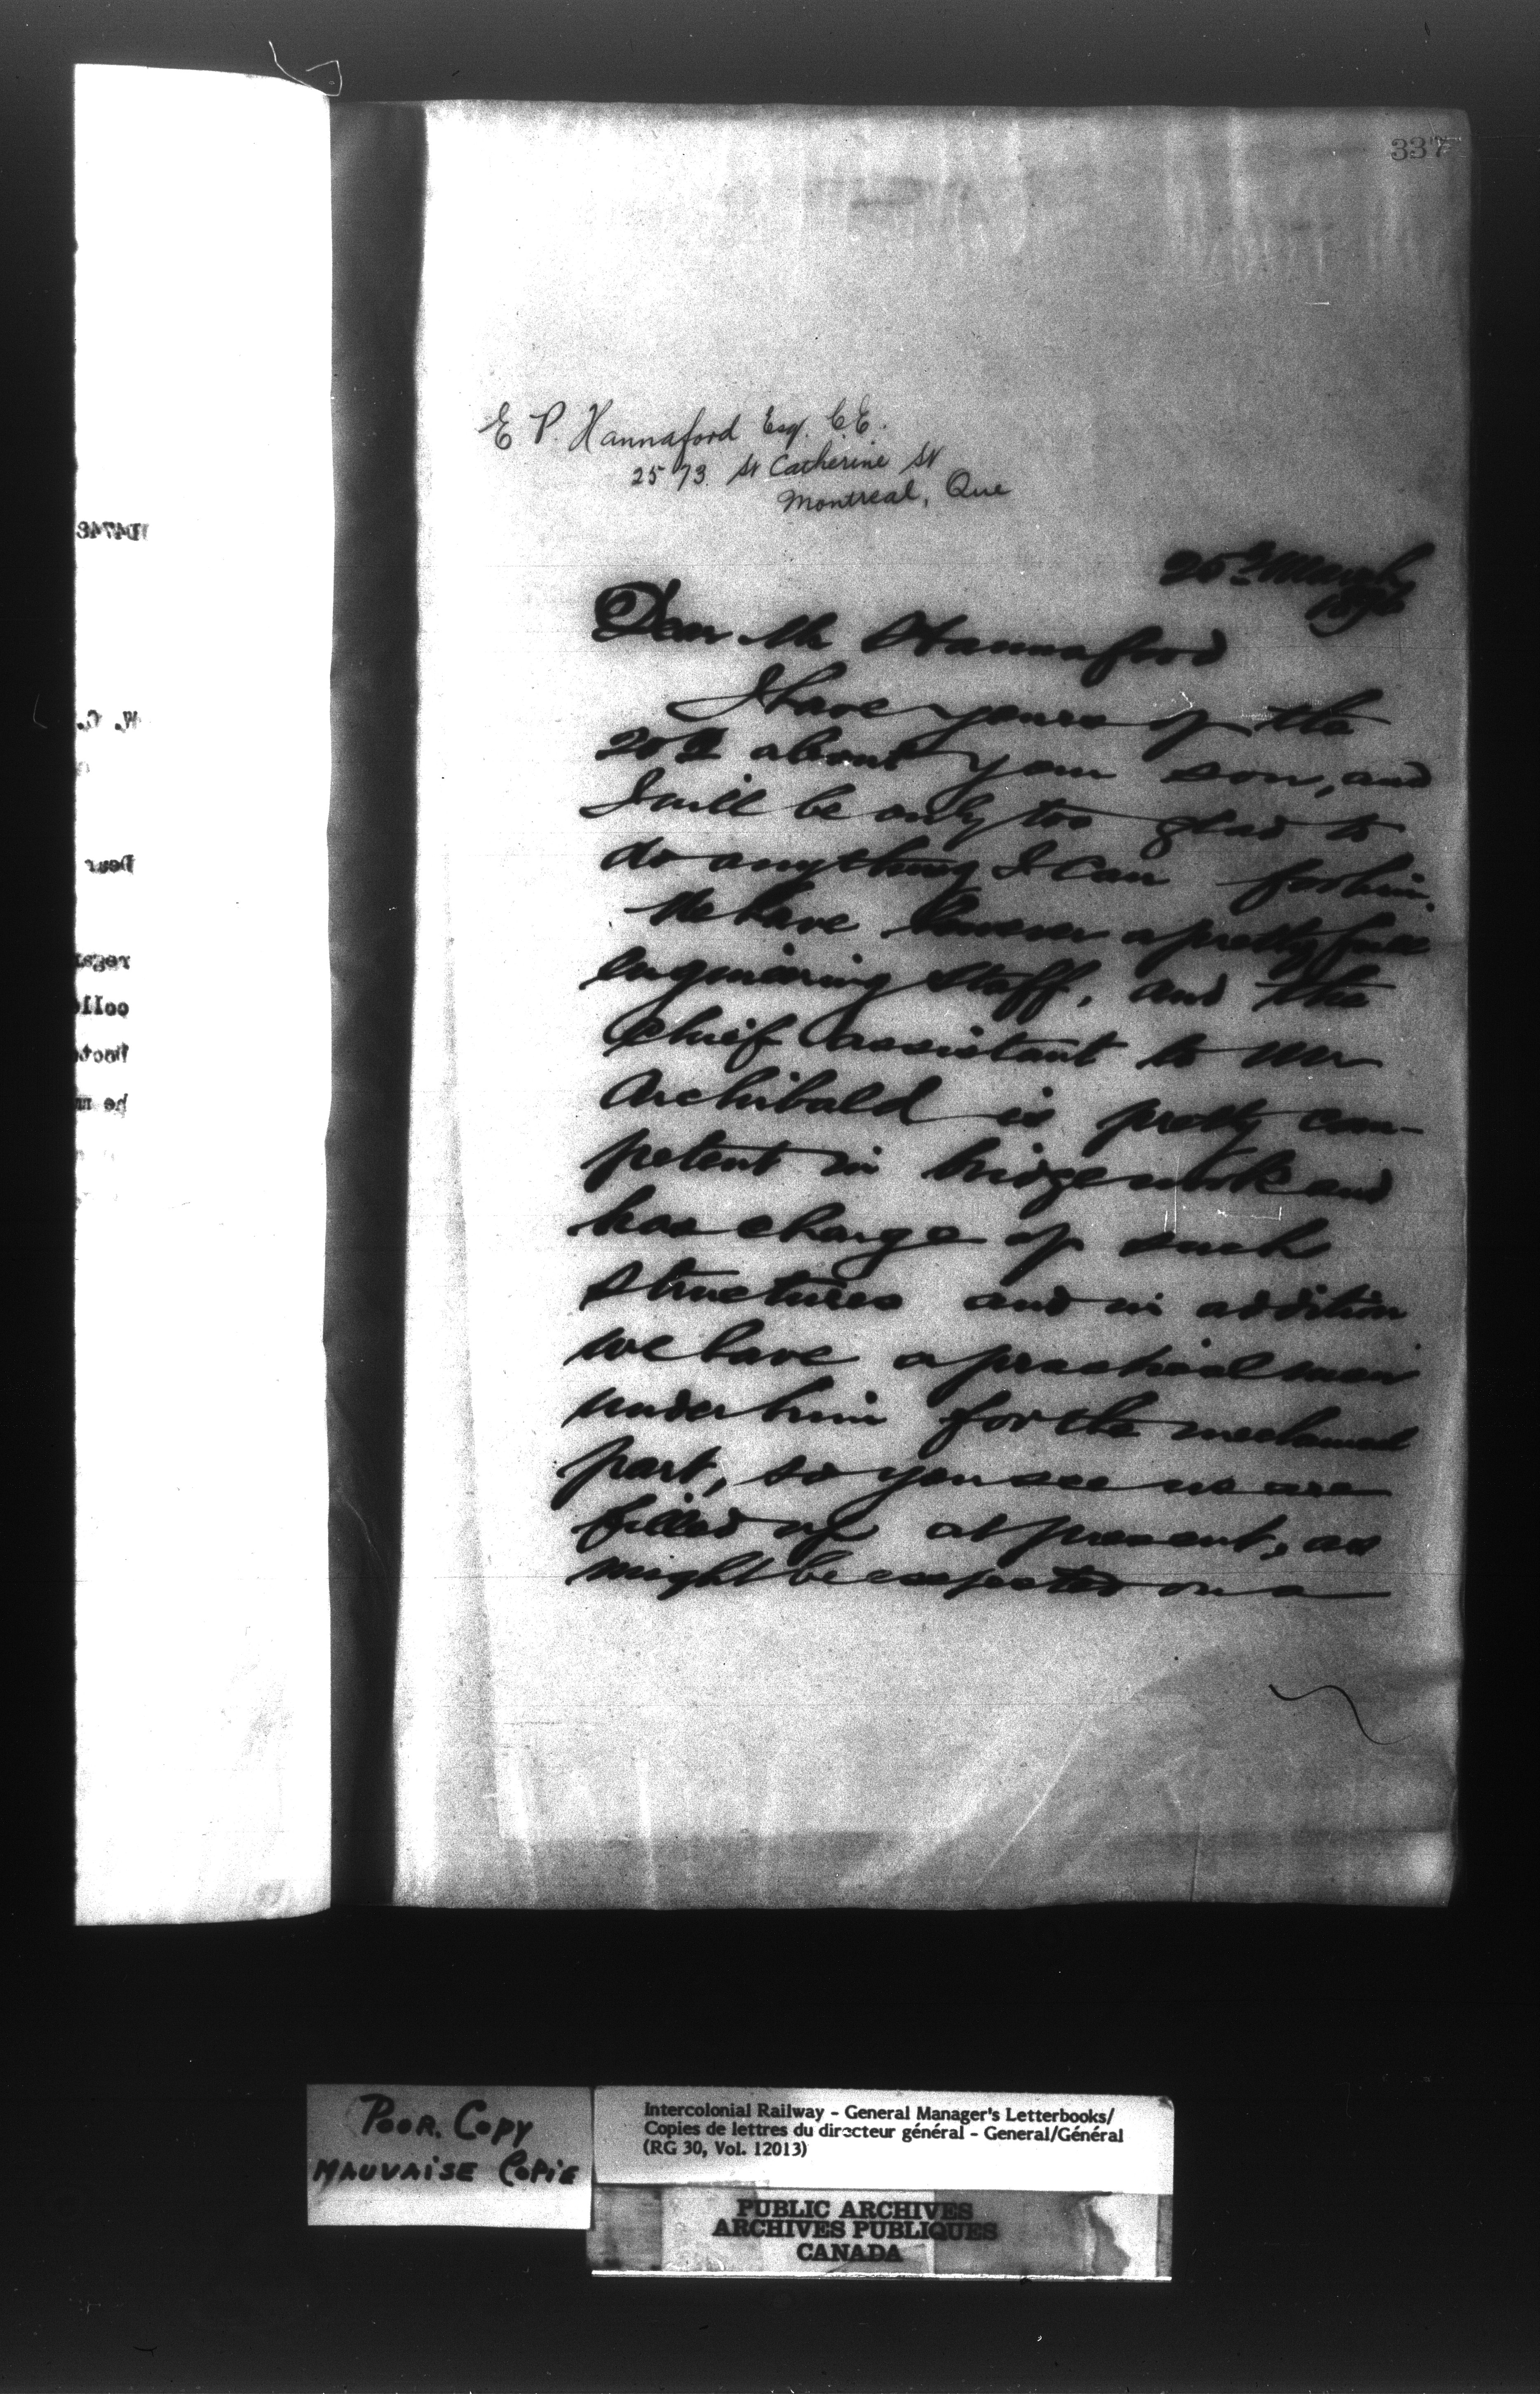 337
E P. Hannaford Esq. C.E.
2573. St Catherine St
Montreal, Que
March
1896
Dear Mr Hannaford
I have yours of the
20th about your son, and
I will be only too glad to
do anything I can for him.
We have however a pretty full
engineering staff, and the
Chief assistant to Mr
Archibald is pretty com-
petent in bridge work and
has charge of such
structures and in addition
we have a practical man
under him for the mechanical
part, so you see we are
filled up at present, as
might be expected on a
W. C.
Dear
Poor. Copy
Mauvaise Copie
Intercolonial Railway - General Manager's Letterbooks/
Copies de lettres du directeur général - General/Général
(RG 30, Vol. 12013)
PUBLIC ARCHIVES
ARCHIVES PUBLIQUES
CANADA